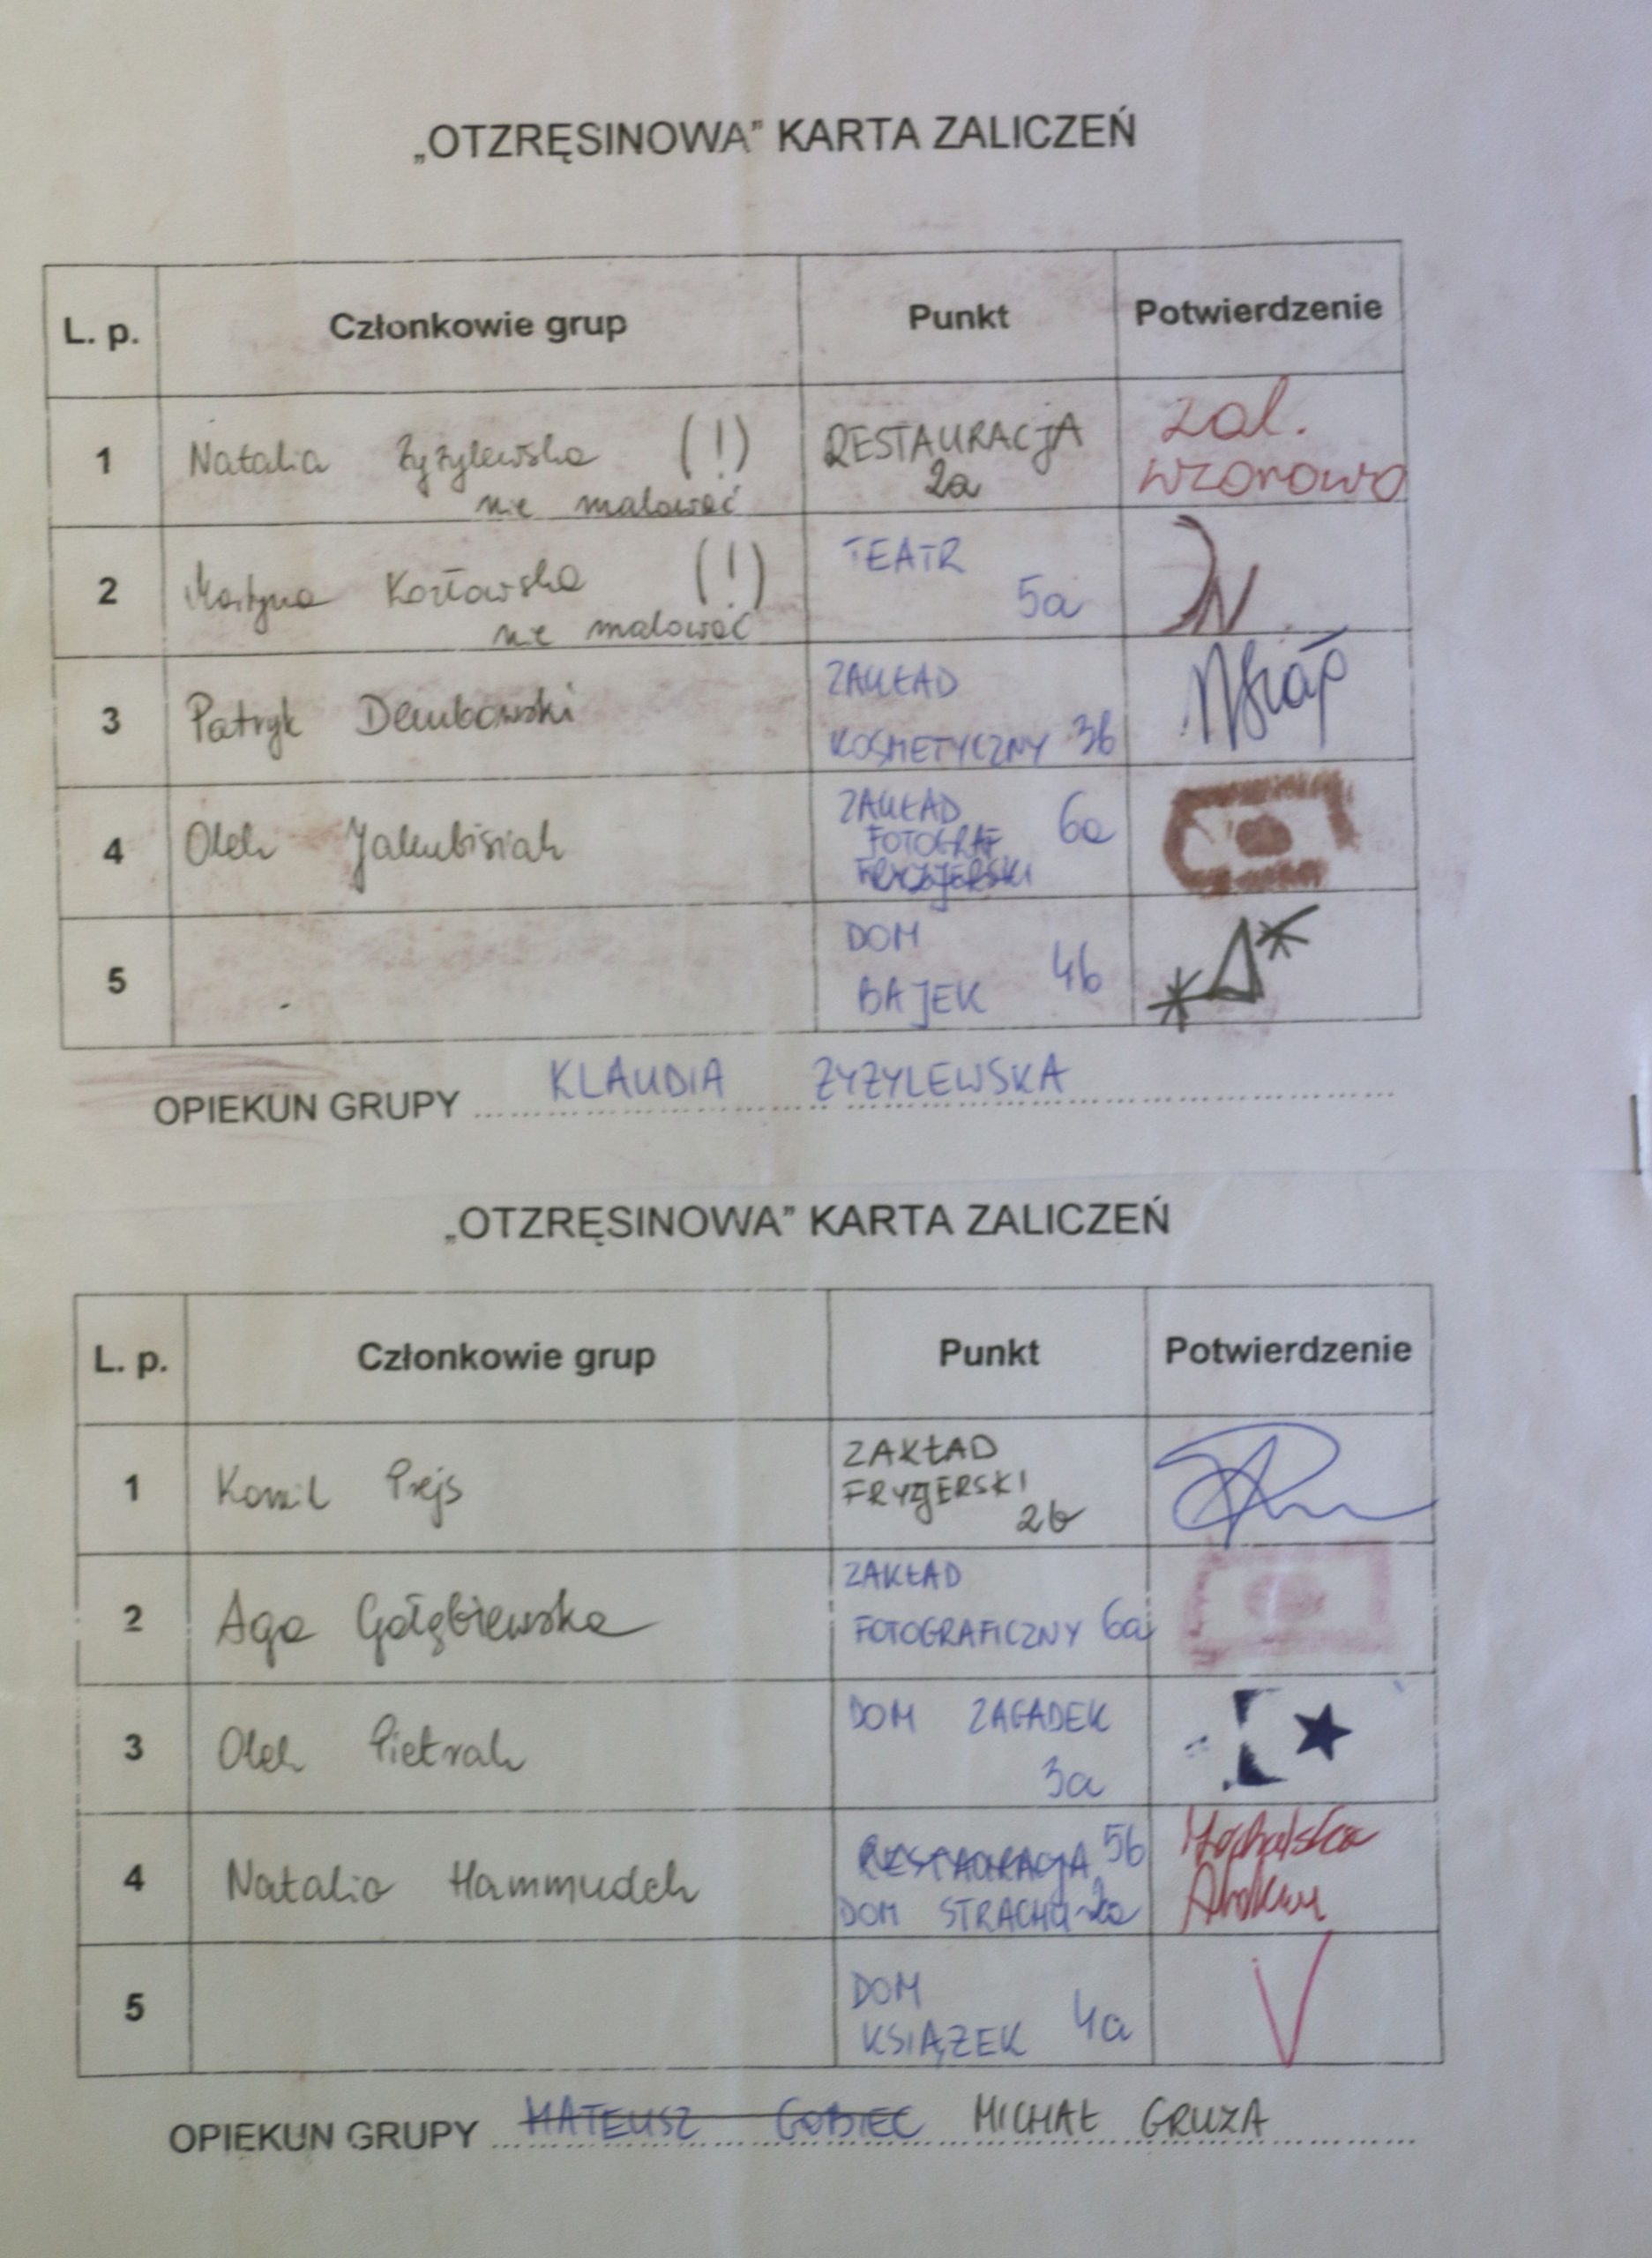 „OTZRĘSINOWA” KARTA ZALICZEŃ
L. p. Członkowie grup Punkt Potwierdzenie
1 Natalia Żyżylewska (!) RESTAURACJA zal.
nie malować 2a wzorowo
2 Martyna Kozłowska (!) TEATR
nie malować 5a
3 Patryk Dembowski ZAKŁAD
KOSMETYCZNY 3b
4 Olek Jakubisiak ZAKŁAD 6a
FOTOGRAF
FRYZJERSKI
5 DOM 4b
BAJEK
OPIEKUN GRUPY KLAUDIA ŻYŻYLEWSKA
„OTZRĘSINOWA” KARTA ZALICZEŃ
L. p. Członkowie grup Punkt Potwierdzenie
1 Kamil Prejs ZAKŁAD
FRYZJERSKI
2b
2 Aga Gołębiewska ZAKŁAD
FOTOGRAFICZNY 6a
3 Olek Pietrak DOM ZAGADEK
3a
4 Natalia Hammudeh RESTAURACJA 5b
DOM STRACHU 2a
5 DOM 4a
KSIĄŻEK
OPIEKUN GRUPY MATEUSZ GOBIEC MICHAŁ GRUZA